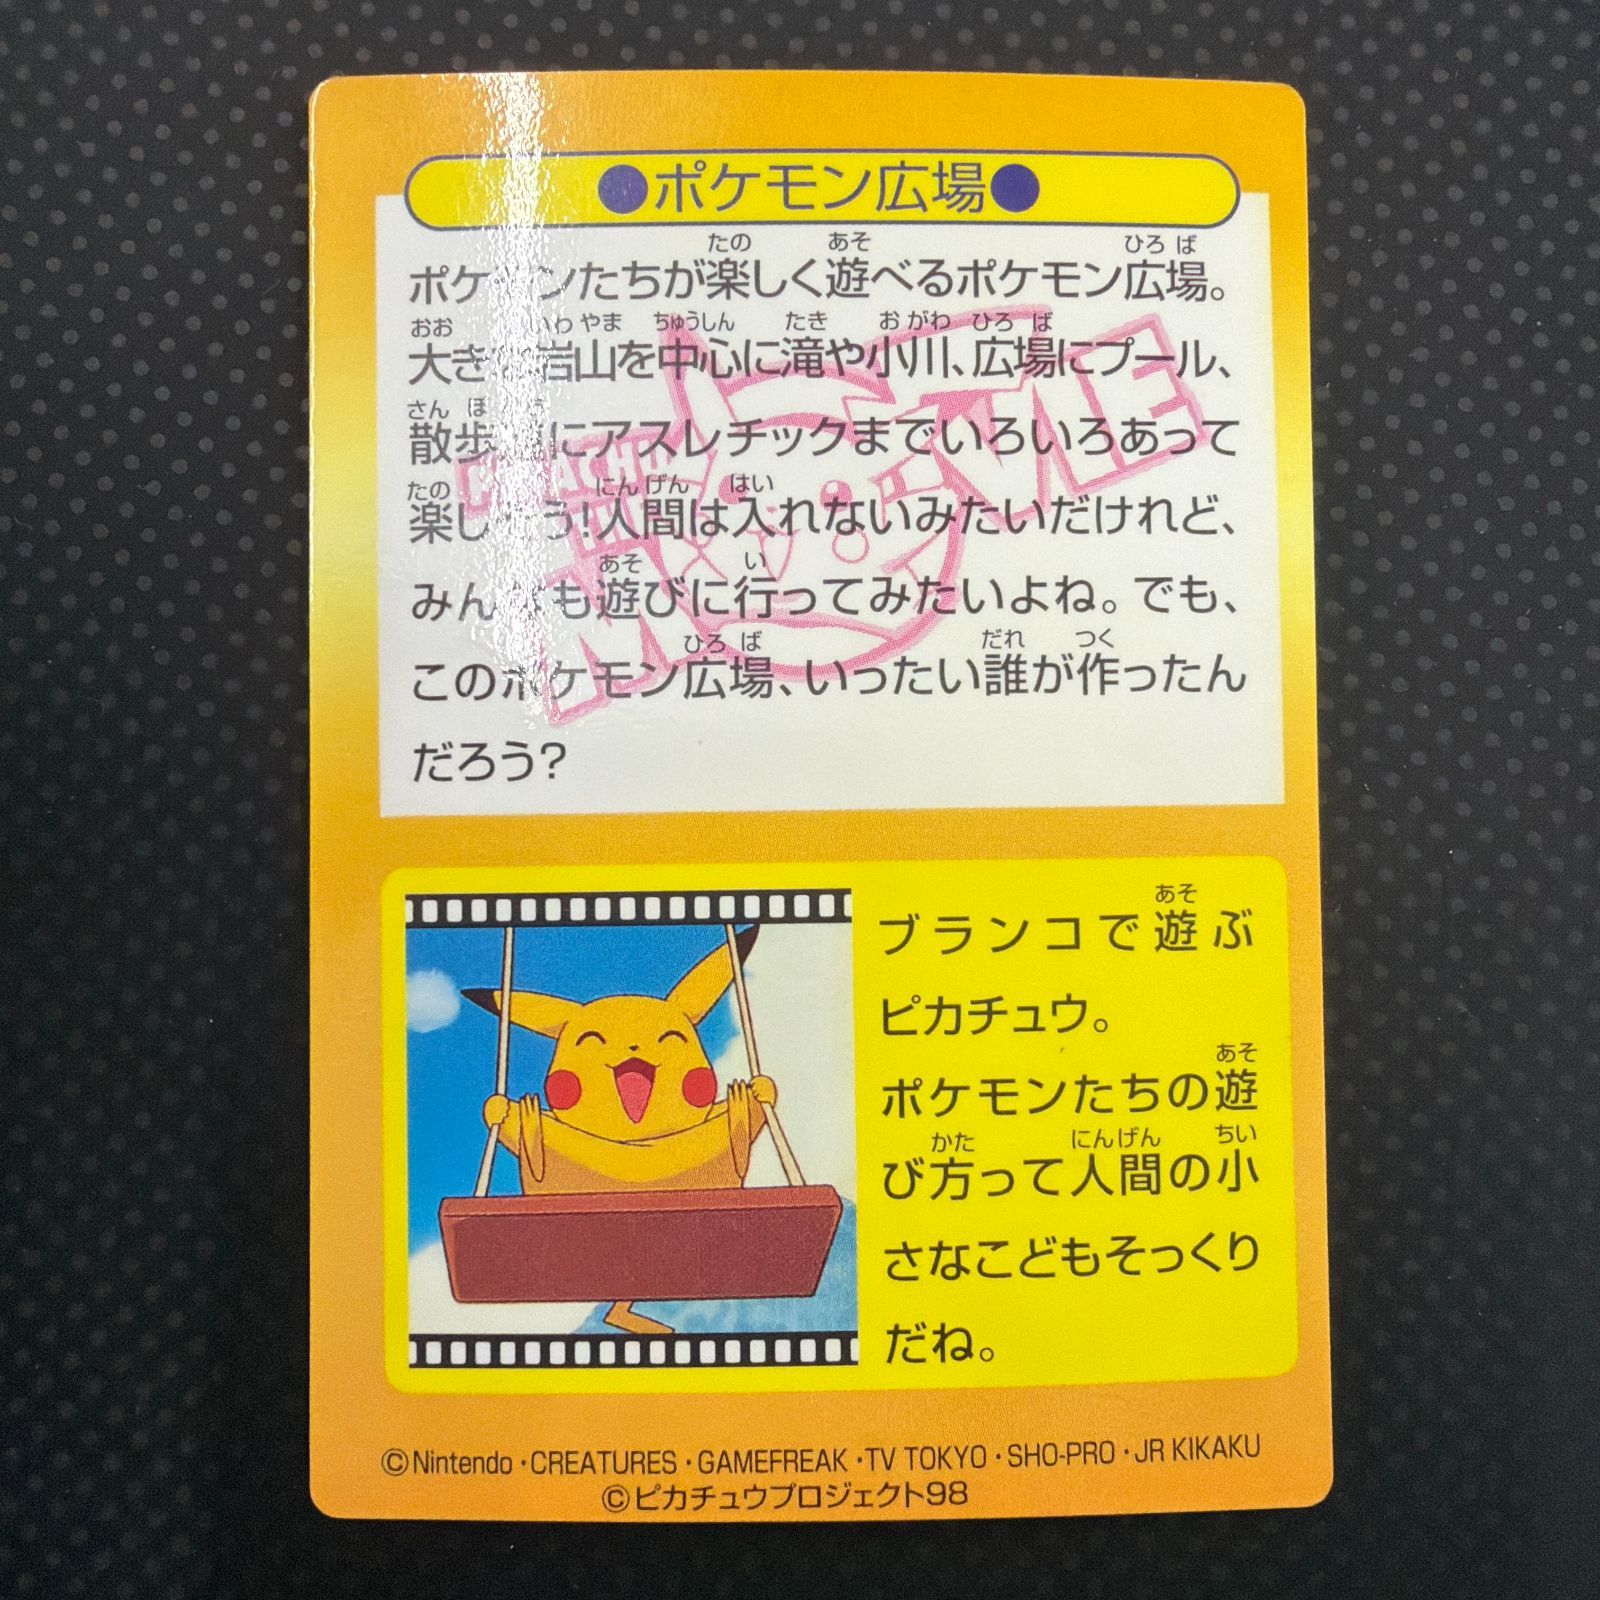 ●ポケモン広場●
ポケモンたちが楽しく遊べるポケモン広場。
大きな岩山を中心に滝や小川、広場にプール、
散歩道にアスレチックまでいろいろあって
楽しそう!人間は入れないみたいだけれど、
みんなも遊びに行ってみたいよね。でも、
このポケモン広場、いったい誰が作ったん
だろう?
ブランコで遊ぶ
ピカチュウ。
ポケモンたちの遊
び方って人間の小
さなこどもそっくり
だね。
©Nintendo・CREATURES・GAMEFREAK・TV TOKYO・SHO-PRO・JR KIKAKU
©ピカチュウプロジェクト98